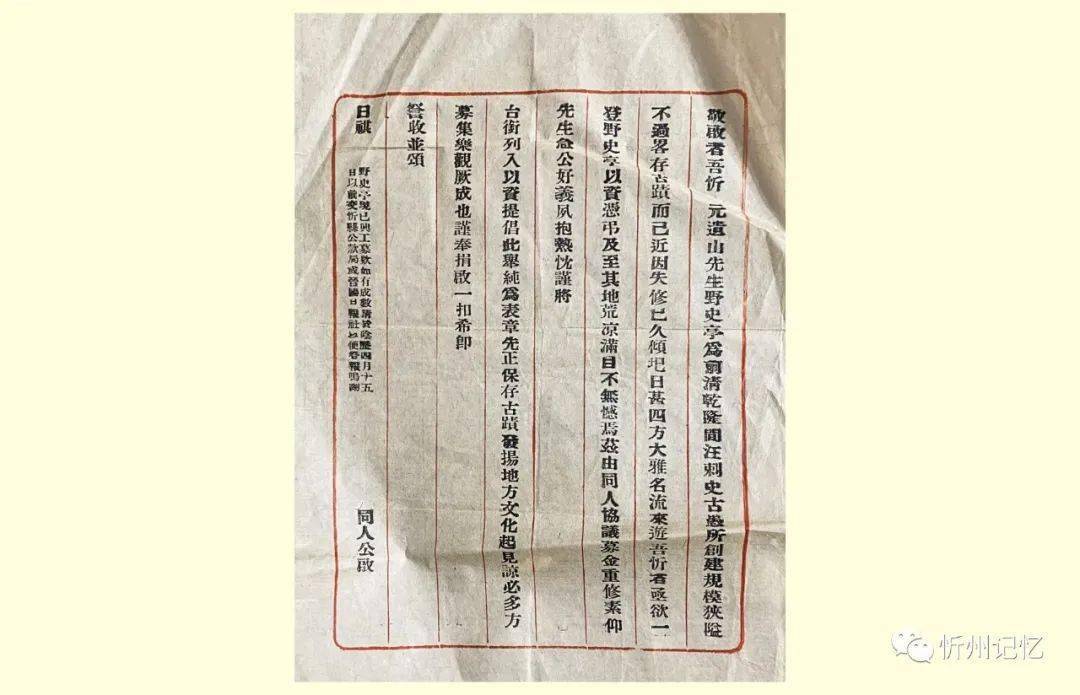 敬啟者吾忻 元遺山先生野史亭爲前清乾隆間汪刺史古愚所創建規模狹隘
不過畧存古蹟而已近因失修已久傾圯日甚四方大雅名流來遊吾忻者亟欲一
登野史亭以資憑弔及至其地荒凉滿目不無憾焉茲由同人協議募金重修素仰
先生急公好義夙抱熱忱謹將
台銜列入以資提倡此舉純爲表章先正保存古蹟發揚地方文化起見諒必多方
募集樂觀厥成也謹奉捐啟一扣希卽
詧收並頌
日祺
野史亭現已興工募欵如有成數請於陰歷四月十五
日以前交忻縣公欵局或晉陽日報社以便登報鳴謝
同人公啟
忻州记忆